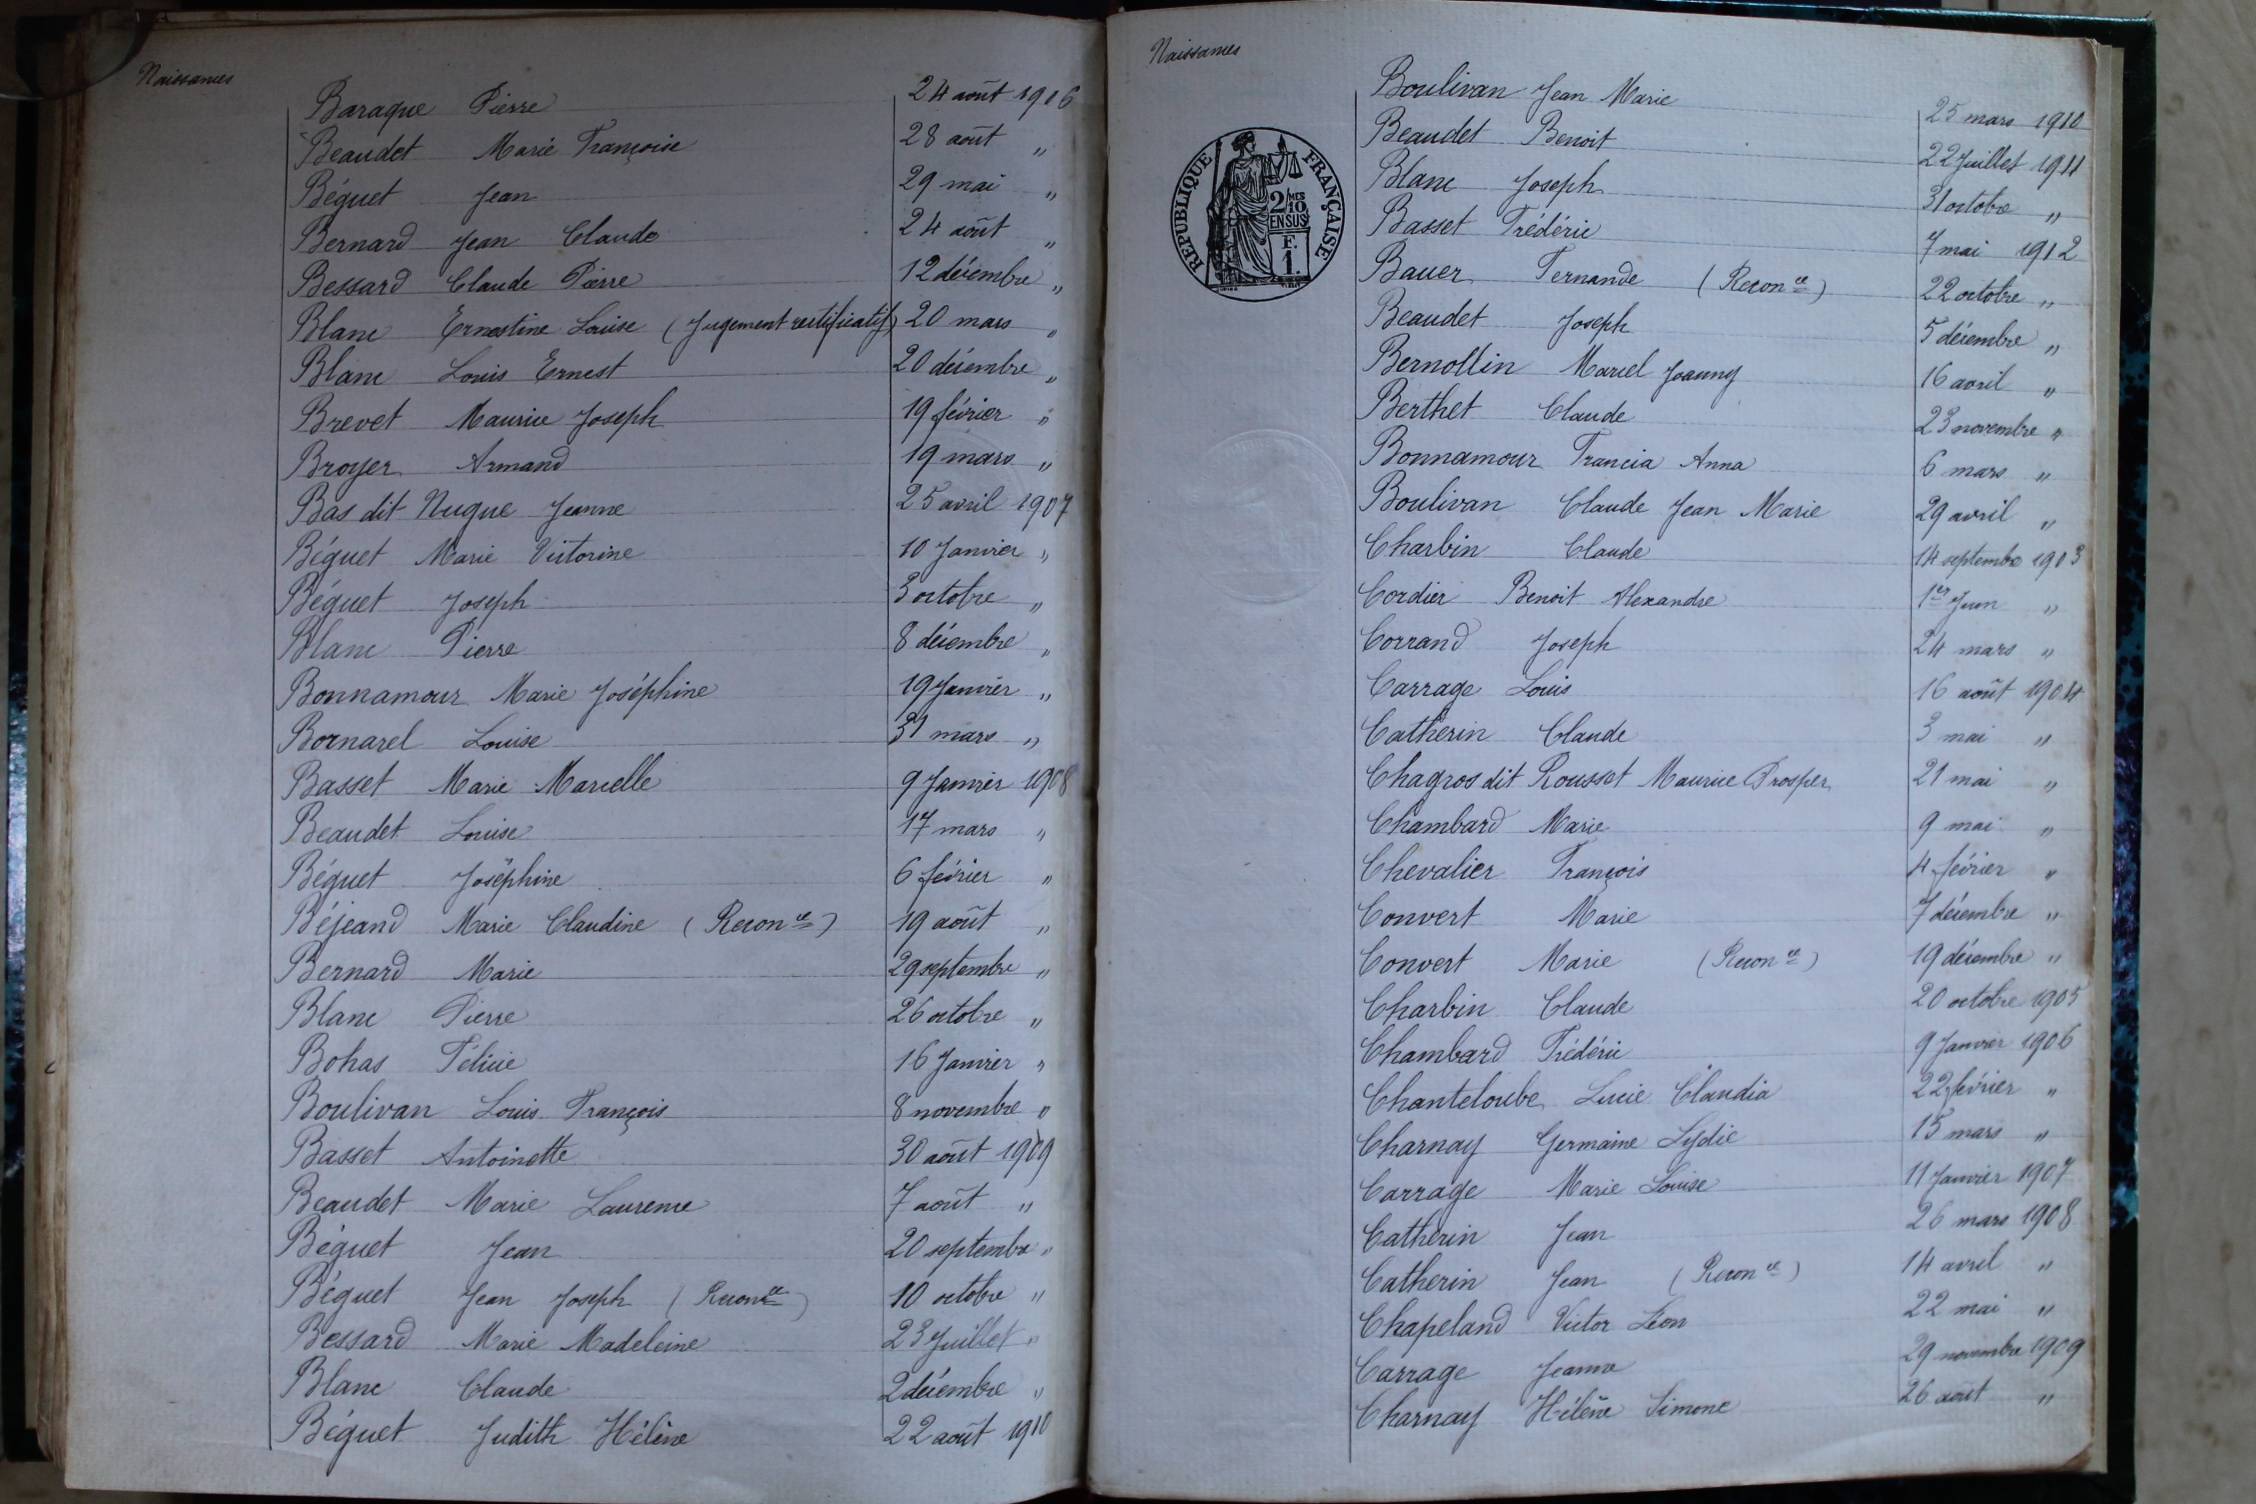 Naissances
Baraque Pierre 24 août 1906
Beaudet Marie Françoise 28 août "
Béguet Jean 29 mai "
Bernard Jean Claude 24 août "
Bessard Claude Pierre 12 décembre "
Blanc Ernestine Louise (Jugement rectificatif) 20 mars "
Blanc Louis Ernest 20 décembre "
Brevet Maurice Joseph 19 février "
Broyer Armand 19 mars "
Bas dit Nugue Jeanne 25 avril 1907
Béguet Marie Victorine 10 Janvier "
Béguet Joseph 3 octobre "
Blanc Pierre 8 décembre "
Bonnamour Marie Joséphine 19 Janvier "
Bornarel Louise 31 mars "
Basset Marie Marcelle 9 Janvier 1908
Beaudet Louise 17 mars "
Béguet Joséphine 6 février "
Béjeand Marie Claudine (Reconce) 19 août "
Bernard Marie 29 septembre "
Blanc Pierre 26 octobre "
Bohas Félicie 16 Janvier "
Boulivan Louis François 8 novembre "
Basset Antoinette 30 août 1909
Beaudet Marie Laurence 7 août "
Béguet Jean 20 septembre "
Béguet Jean Joseph (Reconce) 10 octobre "
Bessard Marie Madeleine 23 Juillet "
Blanc Claude 2 décembre "
Béguet Judith Hélène 22 août 1910
Naissances
REPUBLIQUE FRANÇAISE
2/MES
10
EN SUS
F.
1.
Boulivan Jean Marie 25 mars 1910
Beaudet Benoit 22 Juillet 1911
Blanc Joseph 31 octobre "
Basset Frédéric 7 mai 1912
Bauer Fernande (Reconce) 22 octobre "
Beaudet Joseph 5 décembre "
Bernollin Marcel Joanny 16 avril "
Berthet Claude 23 novembre "
Bonnamour Francia Anna 6 mars "
Boulivan Claude Jean Marie 29 avril "
Charbin Claude 14 septembre 1903
Cordier Benoit Alexandre 1er Juin "
Corrand Joseph 24 mars "
Carrage Louis 16 août 1904
Catherin Claude 3 mai "
Chagros dit Rousset Maurice Prosper 21 mai "
Chambard Marie 9 mai "
Chevalier François 4 février "
Convert Marie 7 décembre "
Convert Marie (Reconce) 19 décembre "
Charbin Claude 20 octobre 1905
Chambard Frédéric 9 Janvier 1906
Chanteloube Lucie Claudia 22 février "
Charnay Germaine Lydie 15 mars "
Carrage Marie Louise 11 Janvier 1907
Catherin Jean 26 mars 1908
Catherin Jean (Reconce) 14 avril "
Chapeland Victor Léon 22 mai "
Carrage Jeanne 29 novembre 1909
Charnay Hélène Simone 26 août "